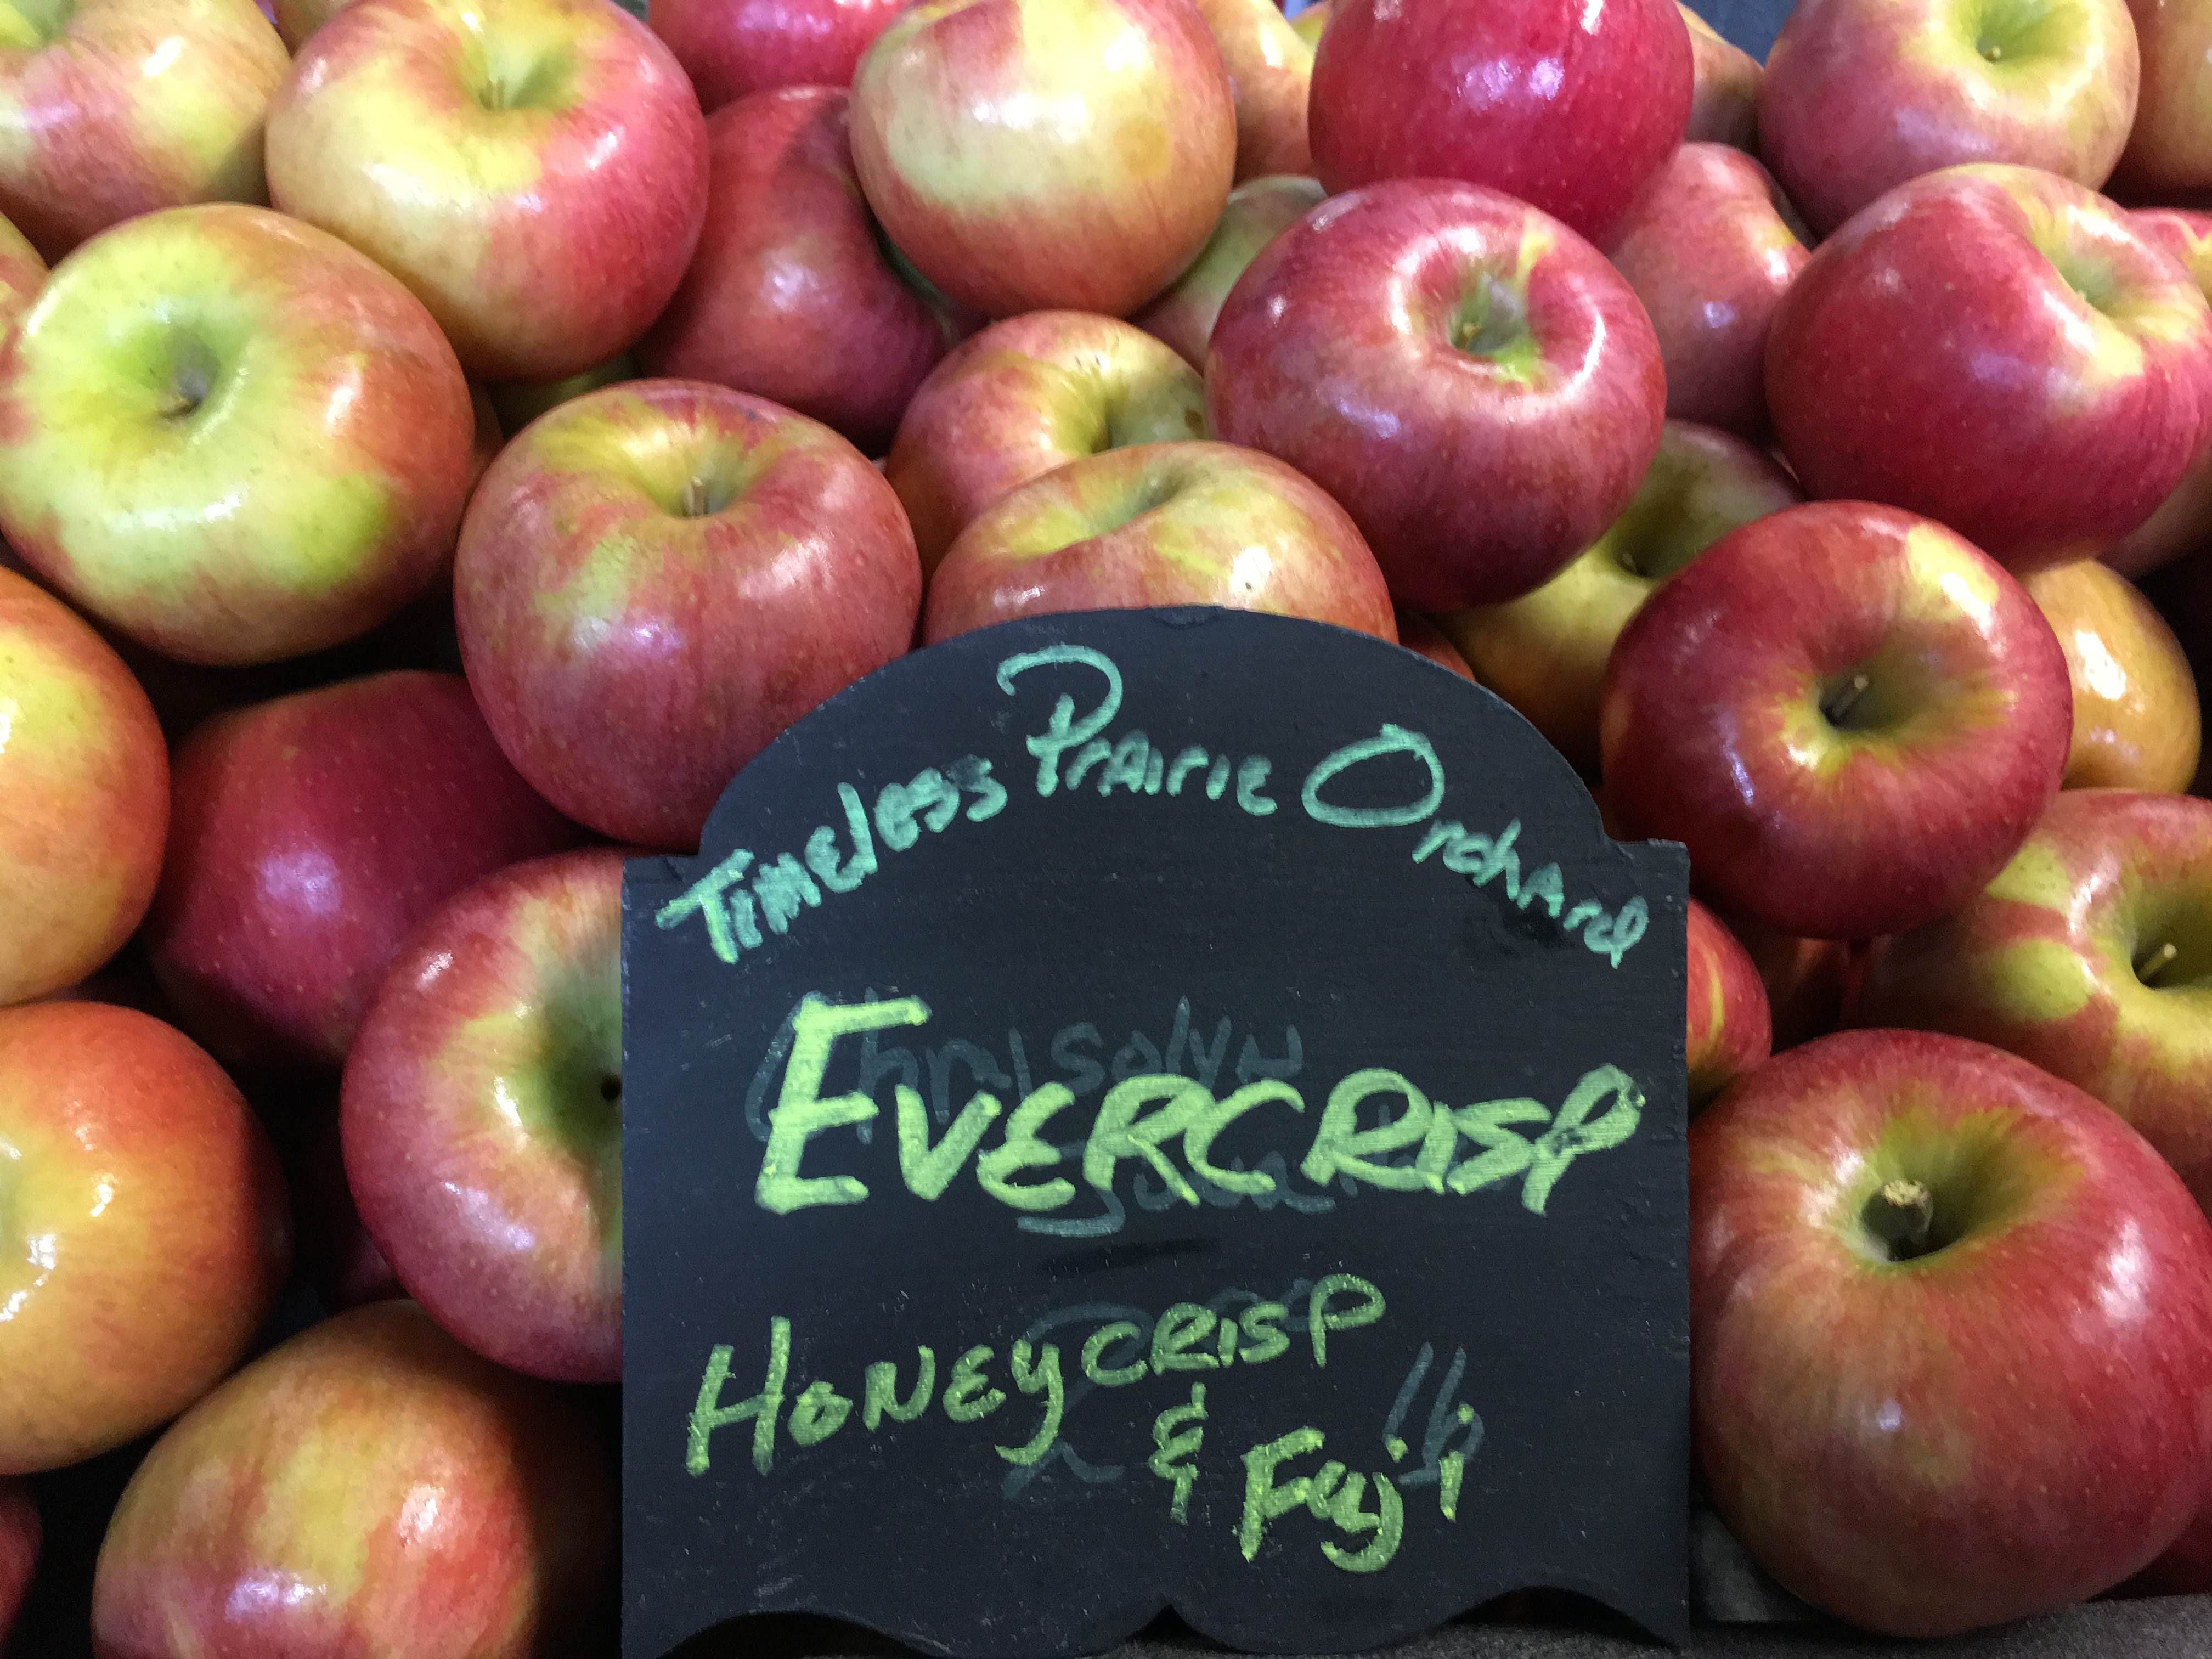 Timeless Prairie Orchard
Chrisolyn
EVERCRISP
HONEYCRISP
&
Fuji
lb